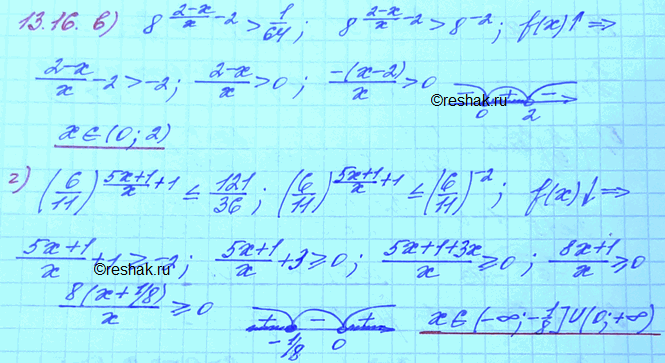 13.16. в) 8^((2-x)/x - 2) > 1/64; 8^((2-x)/x - 2) > 8^(-2); f(x)↑ ⇒
(2-x)/x - 2 > -2; (2-x)/x > 0; -(x-2)/x > 0 - + - 0 2
©reshak.ru
x ∈ (0; 2)
г) (6/11)^((5x+1)/x + 1) ≤ 121/36; (6/11)^((5x+1)/x + 1) ≤ (6/11)^(-2); f(x)↓ ⇒
(5x+1)/x + 1 ≥ -2; (5x+1)/x + 3 ≥ 0; (5x+1+3x)/x ≥ 0; (8x+1)/x ≥ 0
©reshak.ru
8(x+1/8)/x ≥ 0 + - + -1/8 0 x ∈ (-∞; -1/8] ∪ (0; +∞)